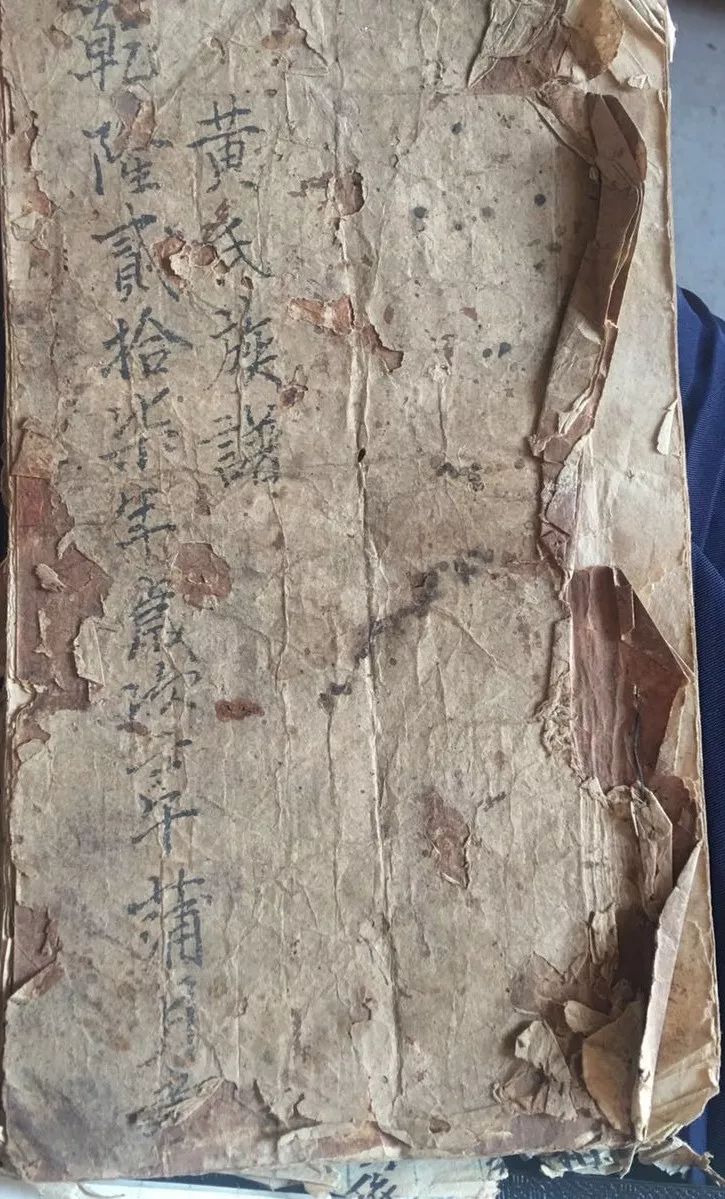 黃氏族譜
乾隆貳拾柒年歲次壬午蒲月